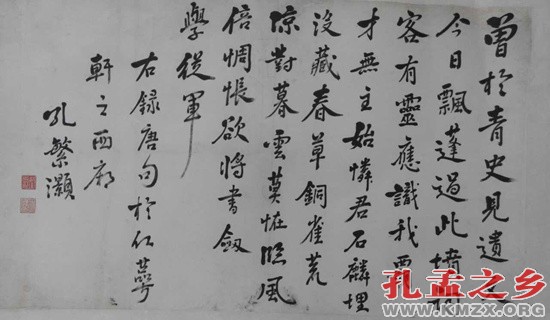 曾於青史見遺文
今日飄蓬過此墳詞
客有靈應識我霸
才無主始憐君石麟埋
沒藏春草銅雀荒
凉對暮雲莫恠臨風
倍惆悵欲將書劔
學從軍
右録唐句於仁蕚
軒之西廊
孔繁灝
孔孟之乡
WWW.KMZX.ORG